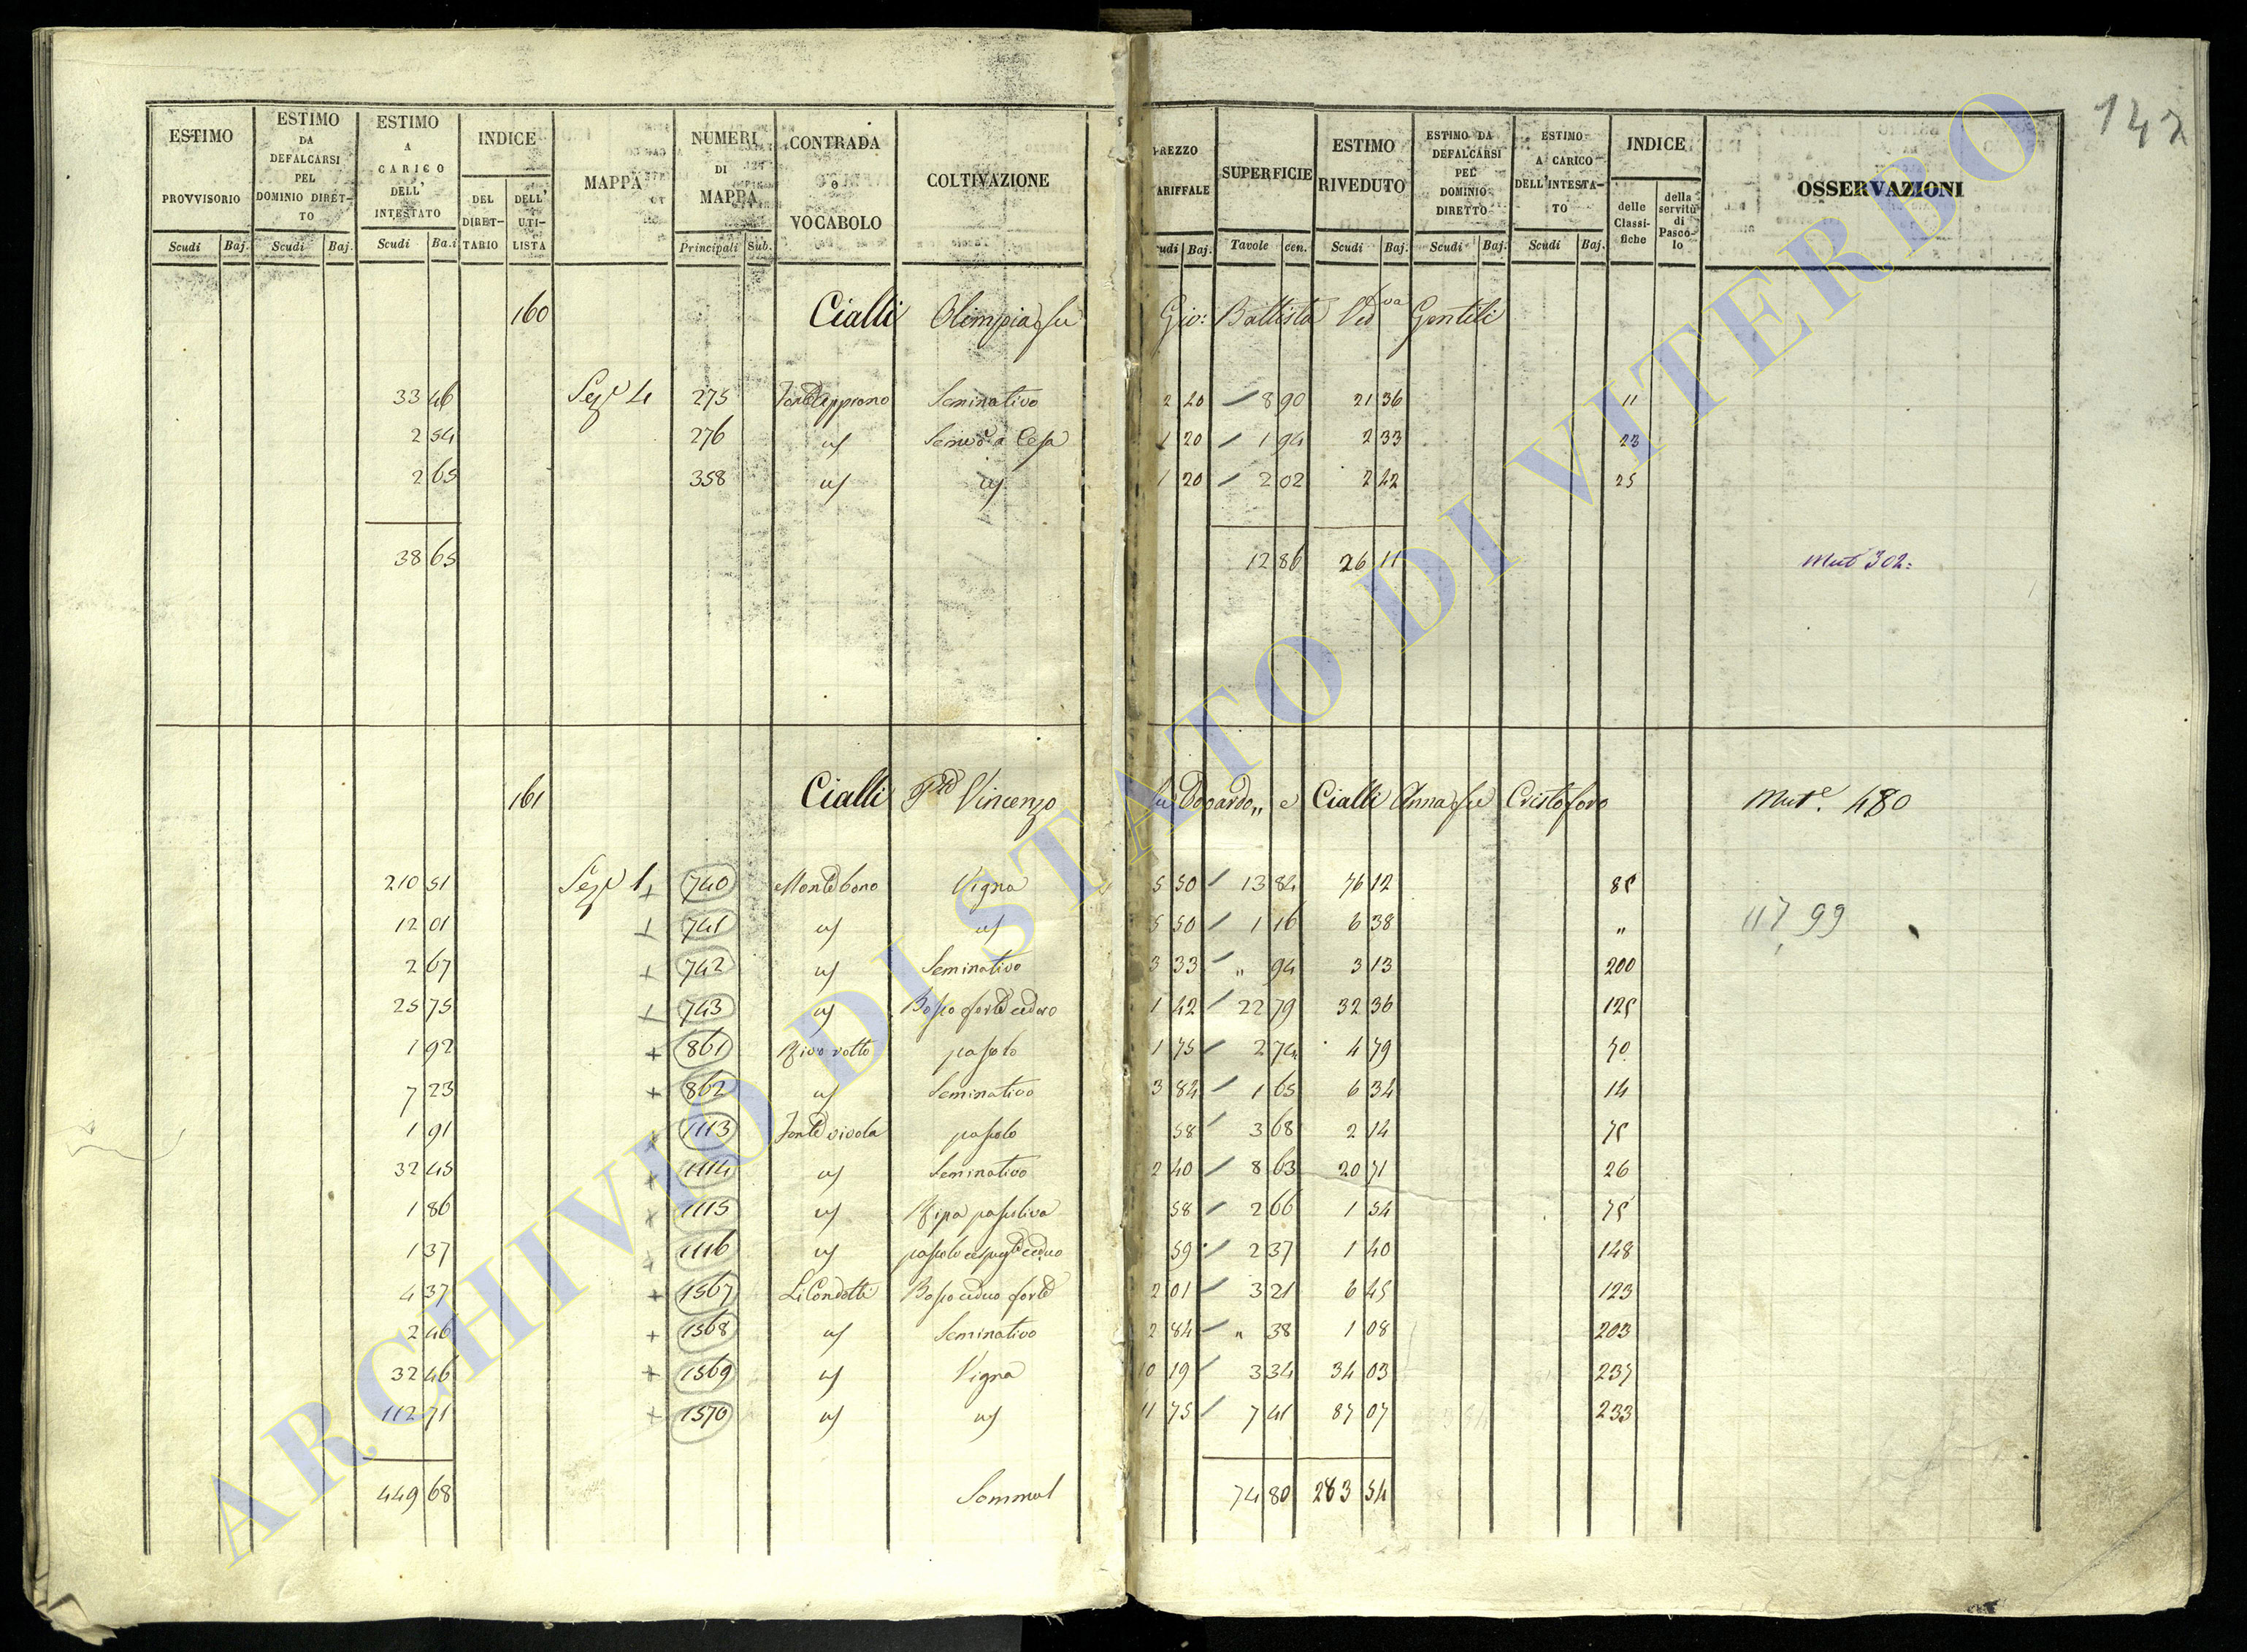 142
ESTIMO PROVVISORIO Scudi Baj.
ESTIMO DA DEFALCARSI PEL DOMINIO DIRET-TO Scudi Baj.
ESTIMO A CARICO DELL' INTESTATO Scudi Ba.i
INDICE DEL DIRET-TARIO DELL' UTI-LISTA
MAPPA
NUMERI DI MAPPA Principali Sub.
CONTRADA o VOCABOLO
COLTIVAZIONE
PREZZO TARIFFALE Scudi Baj.
SUPERFICIE Tavole cen.
ESTIMO RIVEDUTO Scudi Baj.
ESTIMO DA DEFALCARSI PEL DOMINIO DIRETTO Scudi Baj.
ESTIMO A CARICO DELL'INTESTA-TO Scudi Baj.
INDICE delle Classi-fiche della servitù di Pasco-lo
OSSERVAZIONI
160 Cialli Olimpia fu Gio: Battista Ved va Gentili
33 46 Sez e 4 275 Seminativo 2 20 8 90 21 36 11
2 54 276 1 20 1 94 2 33 23
2 65 358 1 20 2 02 2 42 25
38 65 12 86 26 11 Mut 302:
161 Cialli Vincenzo fu Odoardo,, e Cialli Anna fu Cristoforo Mut e. 480
210 51 Sez e 1 + 740 Monte bono Vigna 5 50 13 84 76 12 85
12 01 + 741 5 50 1 16 6 38 " 117,99
2 67 + 742 Seminativo 3 33 " 94 3 13 200
25 75 + 743 Bosco forte ceduo 1 42 22 79 32 36 125
1 92 + 861 Rivo rotto pascolo 1 75 2 74 4 79 70
7 23 + 862 Seminativo 3 84 1 65 6 34 14
1 91 + 1113 Fonte vivola pascolo 58 3 68 2 14 75
32 45 + 1114 Seminativo 2 40 8 63 20 71 26
1 86 + 1115 Ripa pascoliva 58 2 66 1 54 75
1 37 + 1116 59 2 37 1 40 148
4 37 + 1567 Li Condotti Bosco ceduo forte 2 01 3 21 6 45 123
2 46 + 1568 Seminativo 2 84 " 38 1 08 203
32 46 + 1569 Vigna 10 19 3 34 34 03 237
112 71 + 1570 11 75 7 41 87 07 233
449 68 74 80 283 54
ARCHIVIO DI STATO DI VITERBO